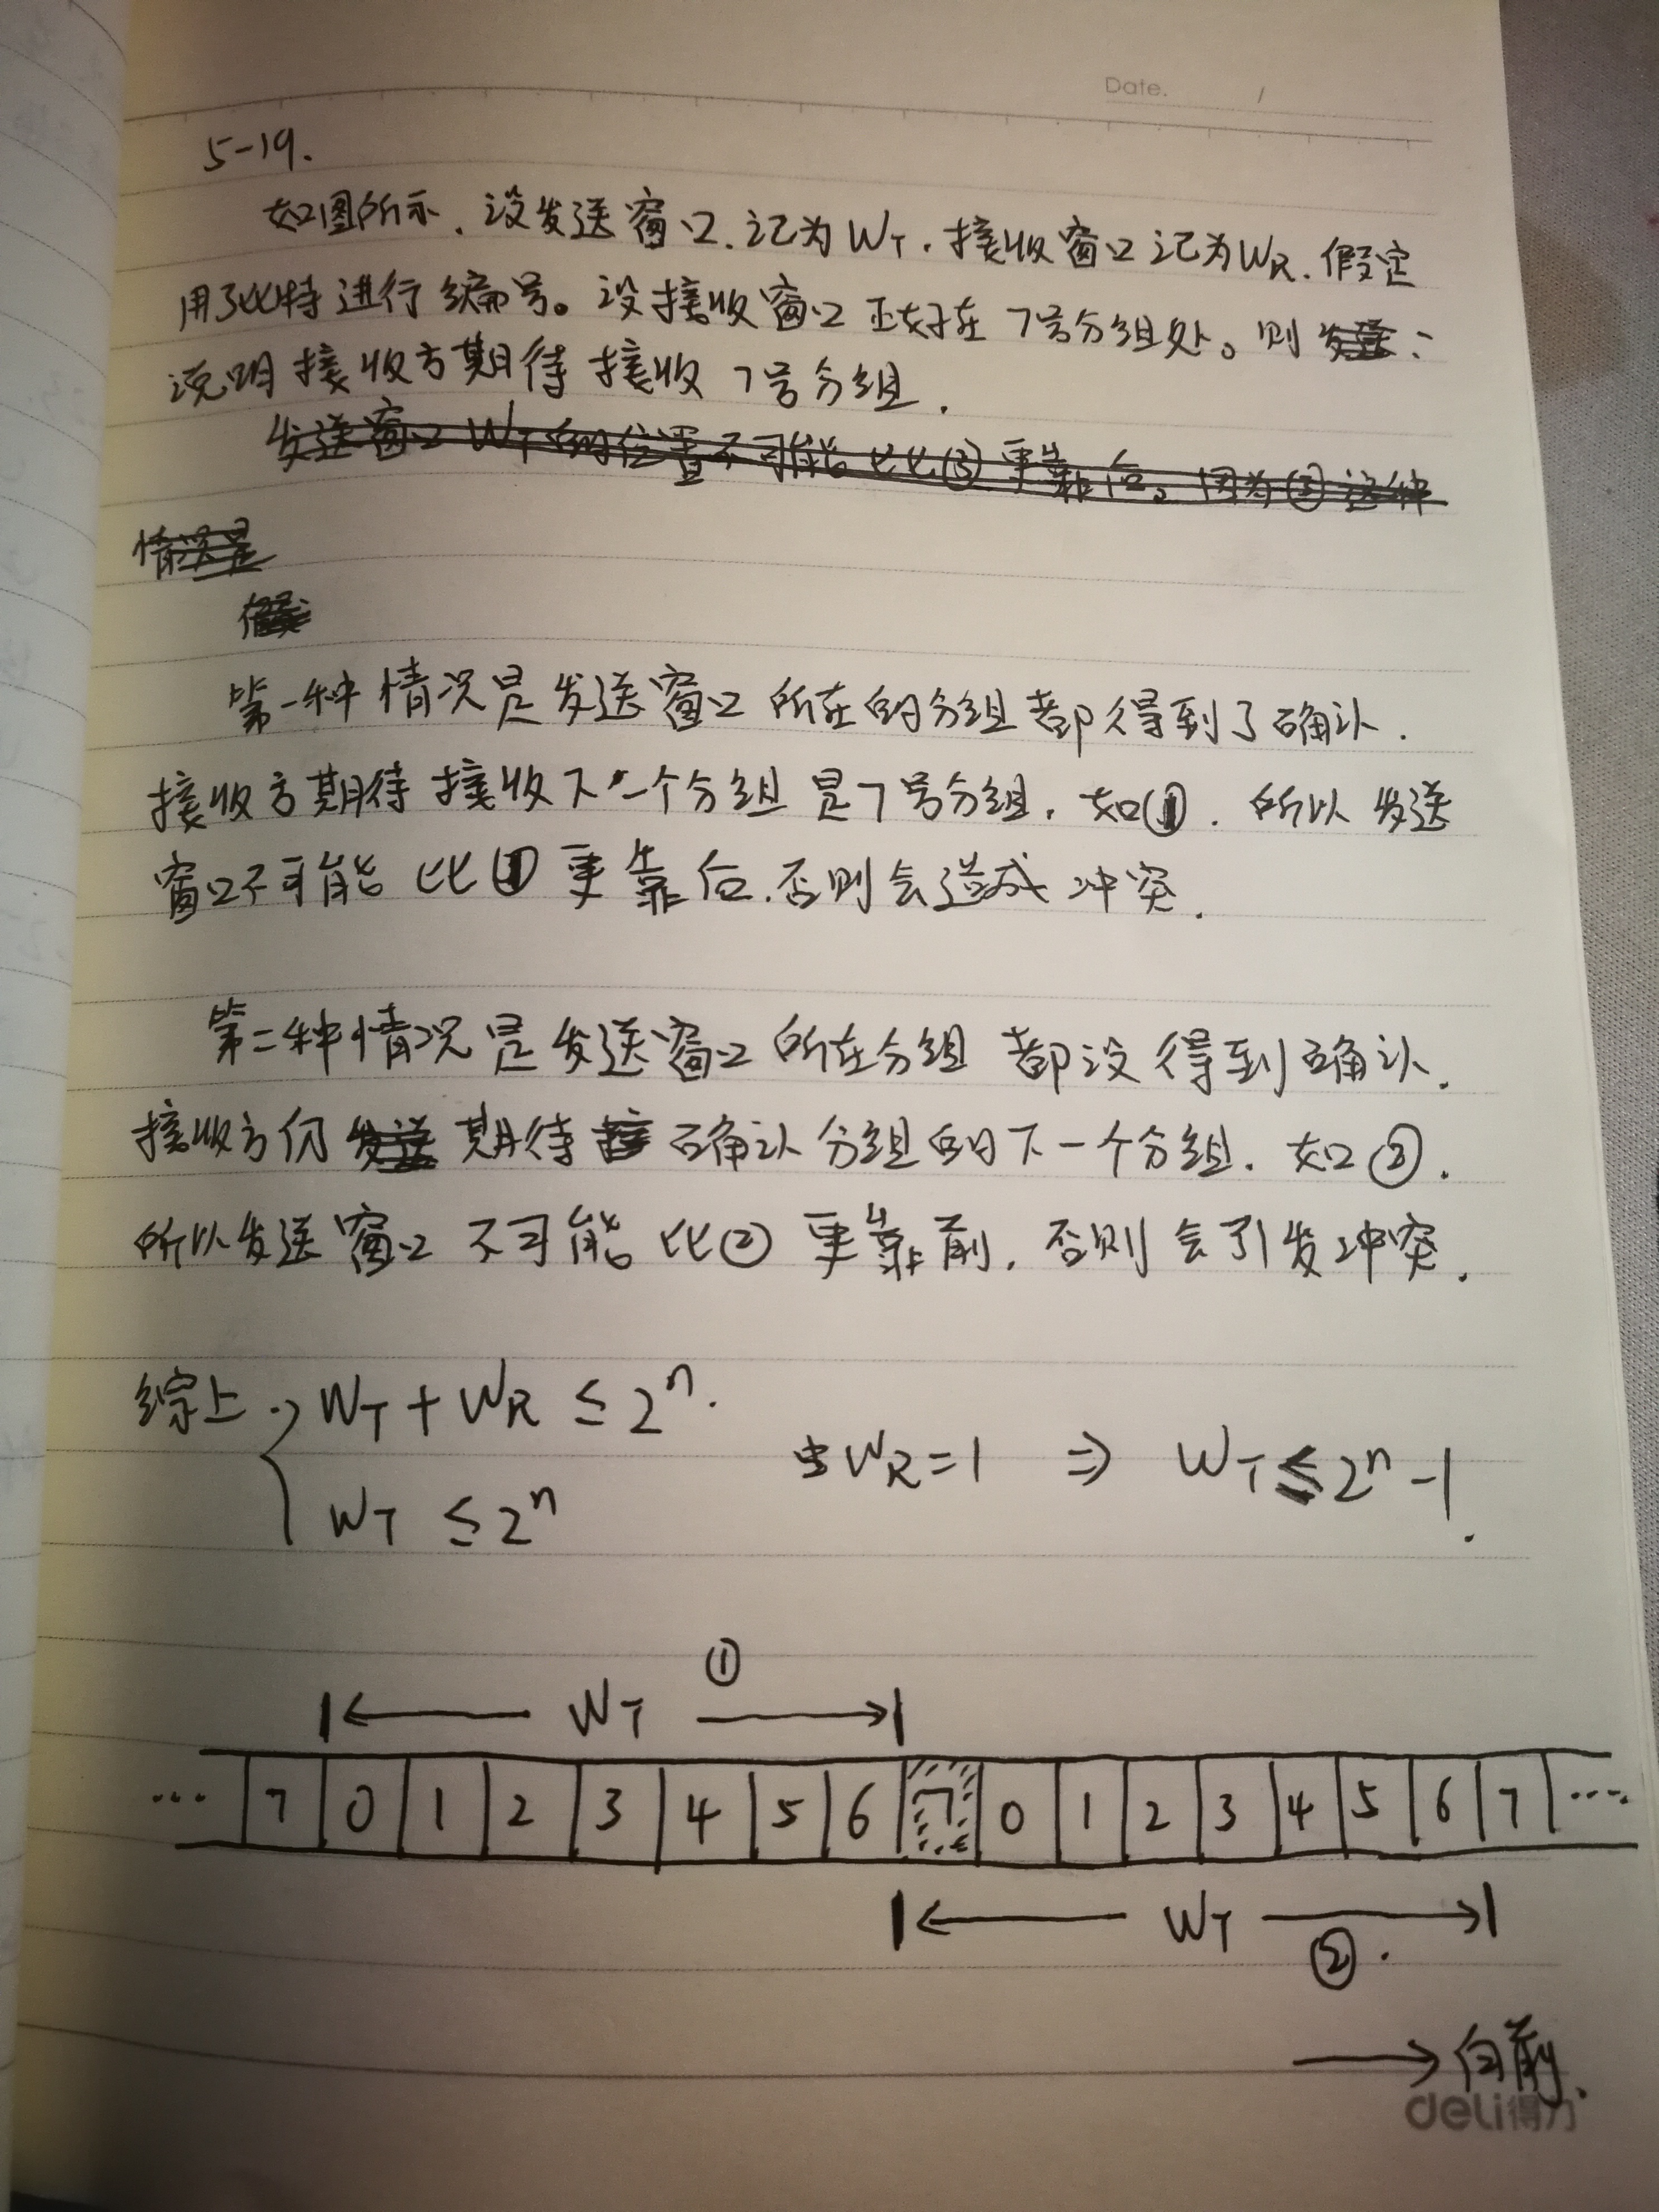 Date. /
5-19.
如图所示，设发送窗口，记为WT，接收窗口记为WR，假定
用3比特进行编号。设接收窗口正好在7号分组处。则发送：
说明接收方期待接收7号分组.
发送窗口WT的位置不可能比③更靠后。因为③这种
情况是
第一种情况是发送窗口所在的分组都得到了确认.
接收方期待接收下一个分组是7号分组，如①．所以发送
窗口不可能比①更靠后，否则会造成冲突.
第二种情况是发送窗口所在分组都没得到确认.
接收方仍发送期待接确认分组的下一个分组．如②.
所以发送窗口不可能比②更靠前，否则会引发冲突.
综上 WT + WR ≤ 2ⁿ.
当WR=1 ⇒ WT ≤ 2ⁿ-1.
WT ≤ 2ⁿ
①
WT
... 7 0 1 2 3 4 5 6 7 0 1 2 3 4 5 6 7 ...
WT
②.
→ 向前.
deli得力